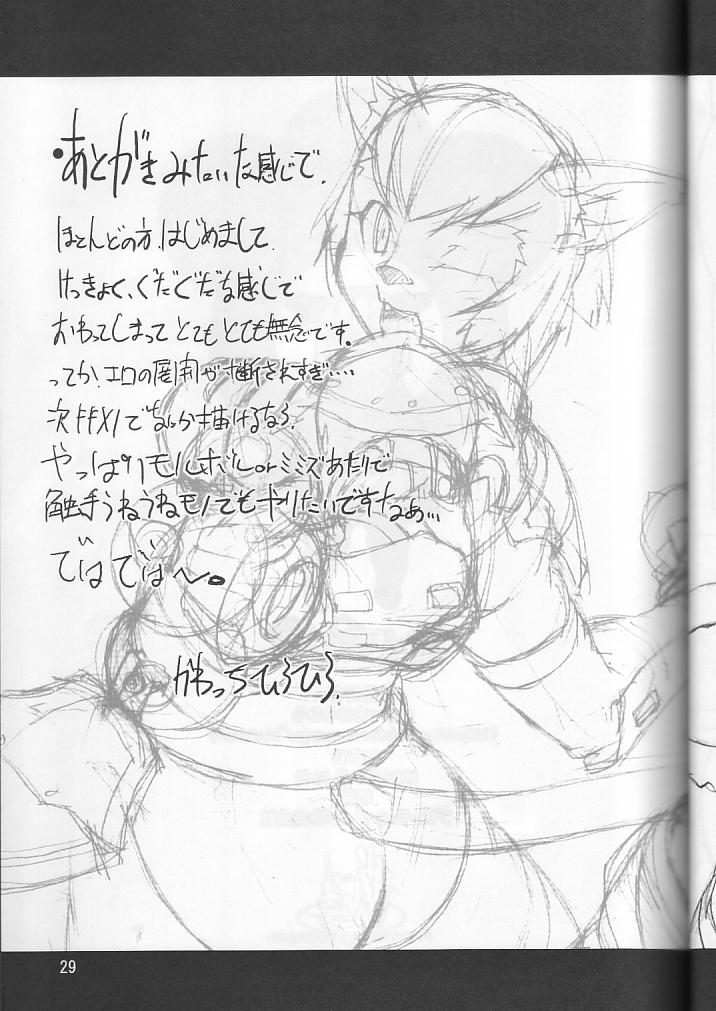 ・あとがきみたいな感じで。
ほとんどの方、はじめまして。
けっきょく、ぐだぐだな感じで
おわってしまってとてもとても無念です。
ってか、エロの展開が寸断されすぎ・・・・
次FFXIでなんか描けるなら、
やっぱりモルボルorミミズあたりで
触手うねうねモノでもやりたいですなぁ・・・
ではでは〜。
かわっちひろひろ
29